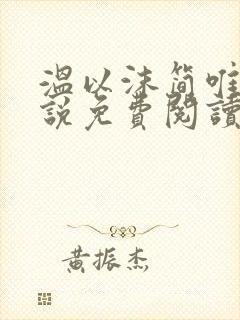 温以沫简唯
説免費閱讀
黄振杰